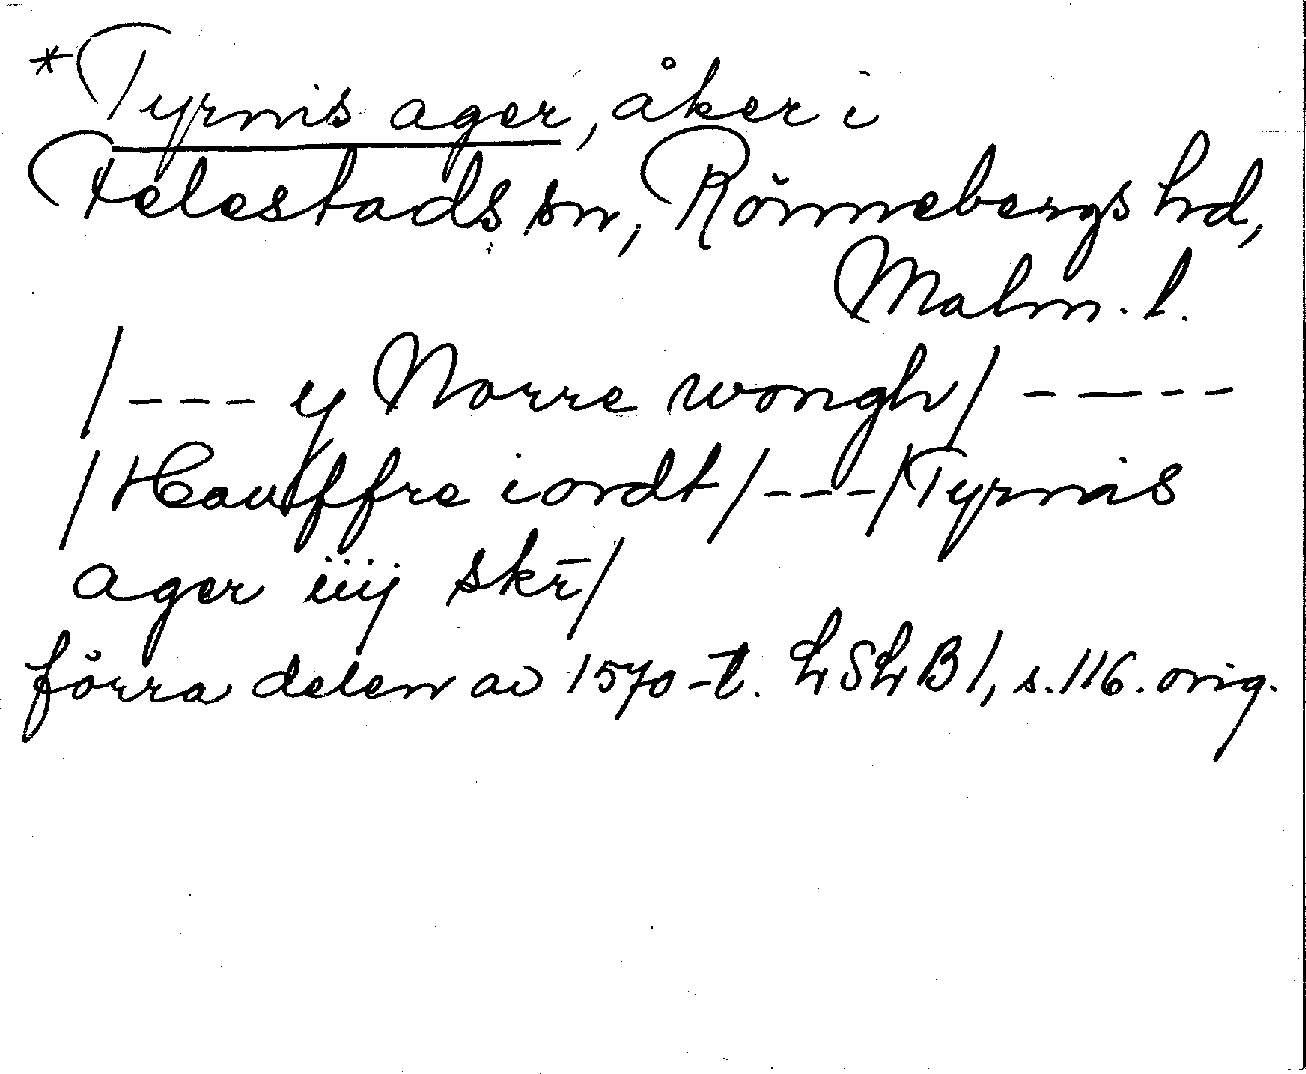 *Tyrnis ager, åker i
Felestads sn, Rönnebergs hd,
Malm. l.
/--- y Norre wongh/ -----
/Hauffre iordt/---/Tyrnis
ager iiij skr̄/
förra delen av 1570-t. LSLB 1, s. 116. orig.